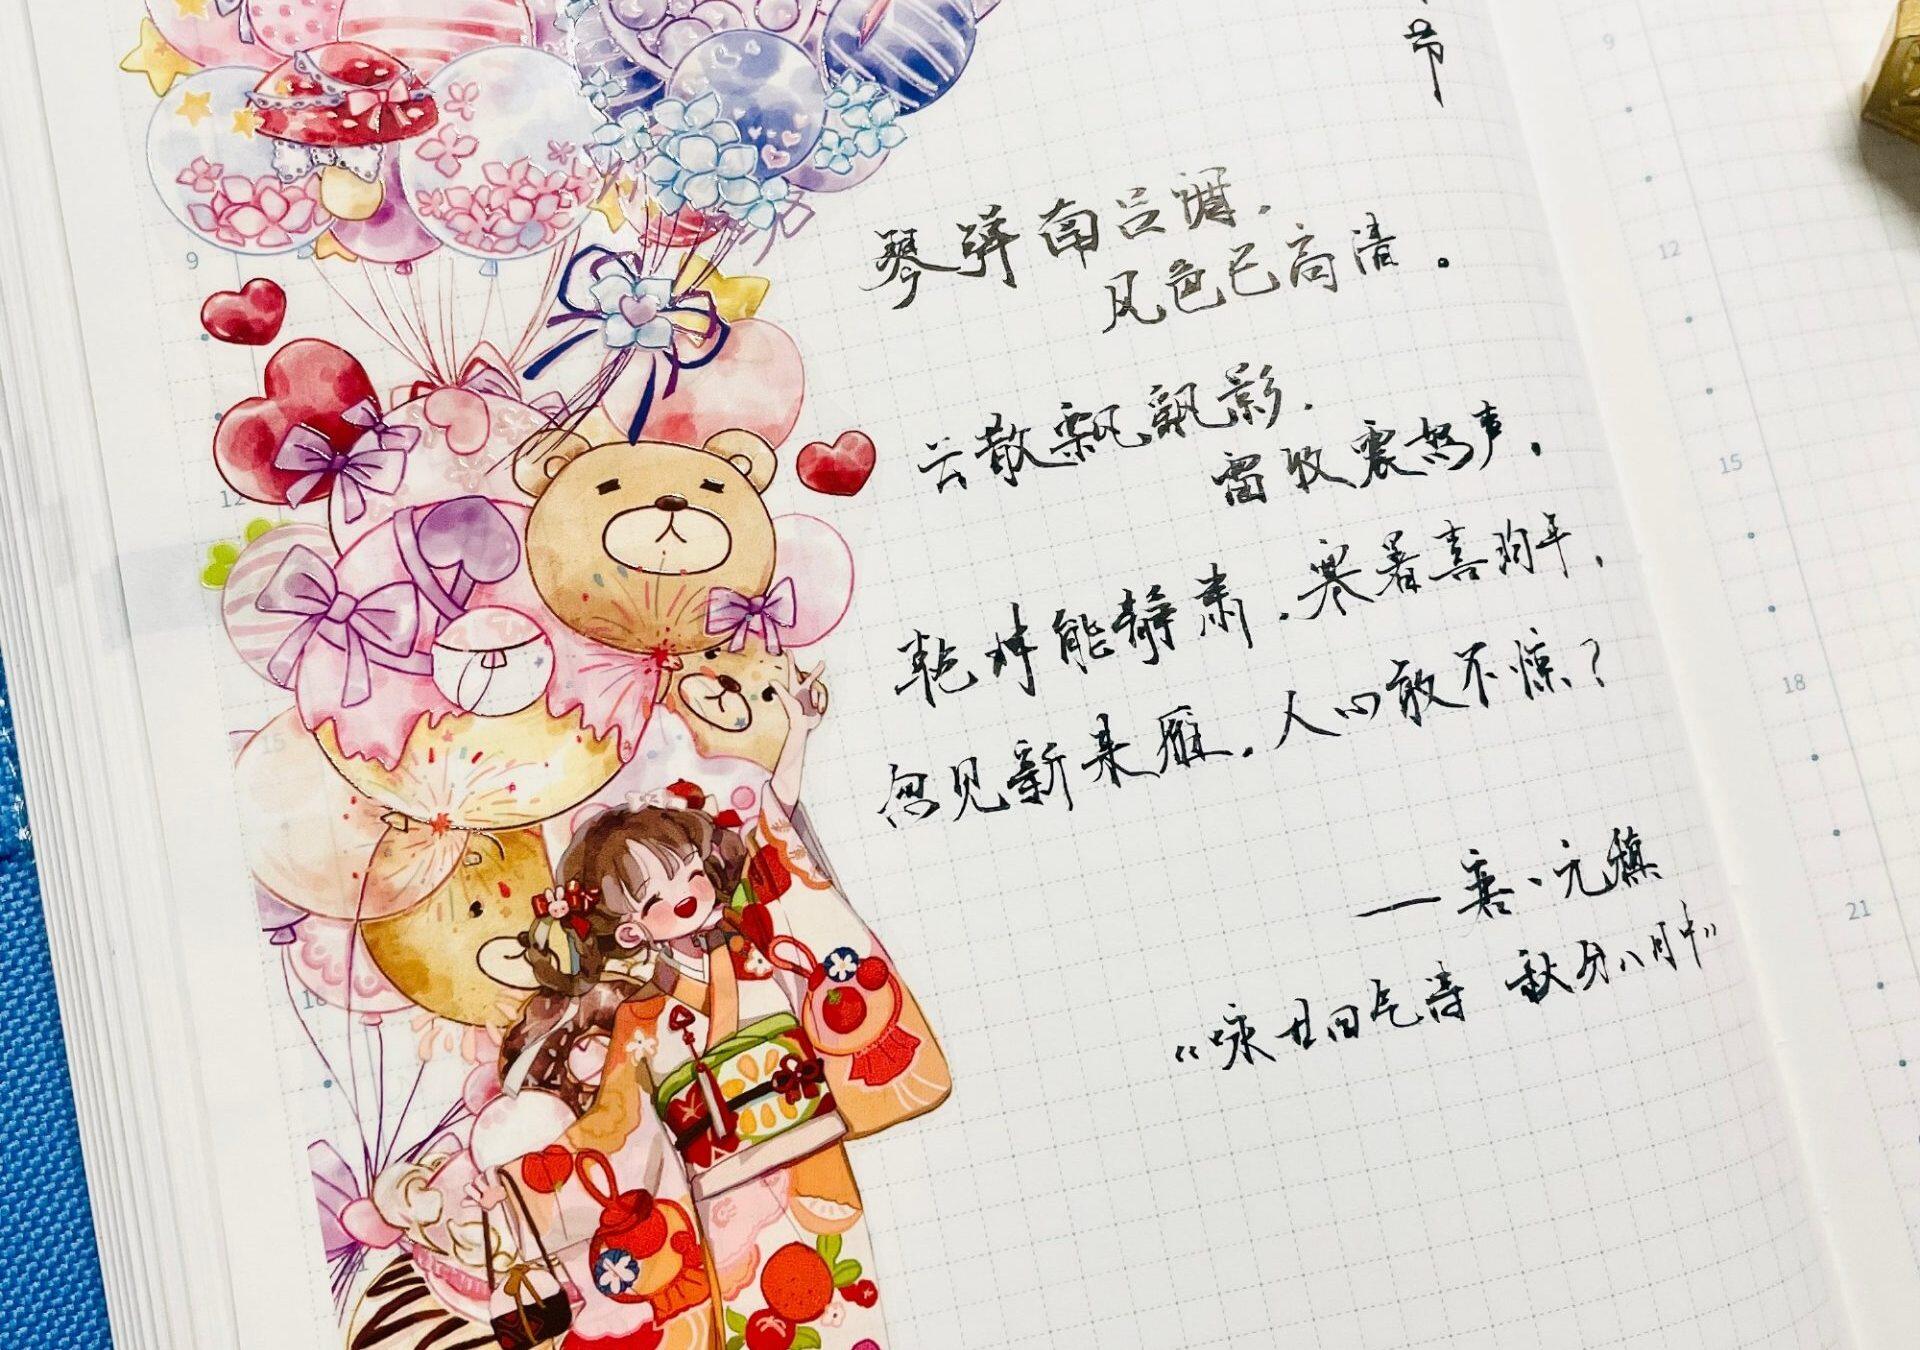 节
琴弹南吕调.
风色已高清。
云散飘飖影.
雷收震怒声.
乾坤能静肃.寒暑喜均平.
忽见新来雁.人心敢不惊？
——唐·元稹
《咏廿四气诗 秋分八月中》
9
12
15
18
9
12
15
18
21